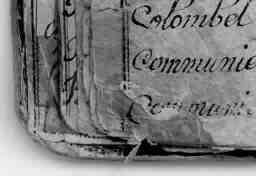 Colombel
Communie
Communi